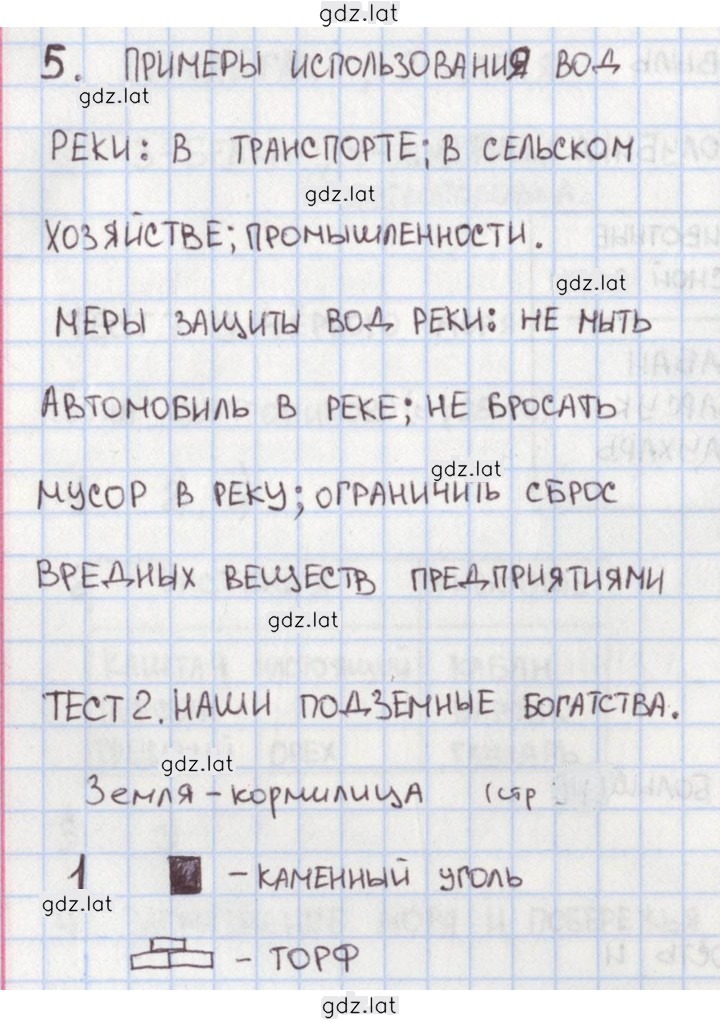 gdz.lat
5. ПРИМЕРЫ ИСПОЛЬЗОВАНИЯ ВОД
gdz.lat
РЕКИ: В ТРАНСПОРТЕ; В СЕЛЬСКОМ
gdz.lat
ХОЗЯЙСТВЕ; ПРОМЫШЛЕННОСТИ.
gdz.lat
МЕРЫ ЗАЩИТЫ ВОД РЕКИ: НЕ МЫТЬ
АВТОМОБИЛЬ В РЕКЕ; НЕ БРОСАТЬ
gdz.lat
МУСОР В РЕКУ; ОГРАНИЧИТЬ СБРОС
ВРЕДНЫХ ВЕЩЕСТВ ПРЕДПРИЯТИЯМИ
gdz.lat
ТЕСТ 2. НАШИ ПОДЗЕМНЫЕ БОГАТСТВА.
gdz.lat
Земля - кормилица (стр
1 - КАМЕННЫЙ УГОЛЬ
gdz.lat
- ТОРФ
gdz.lat